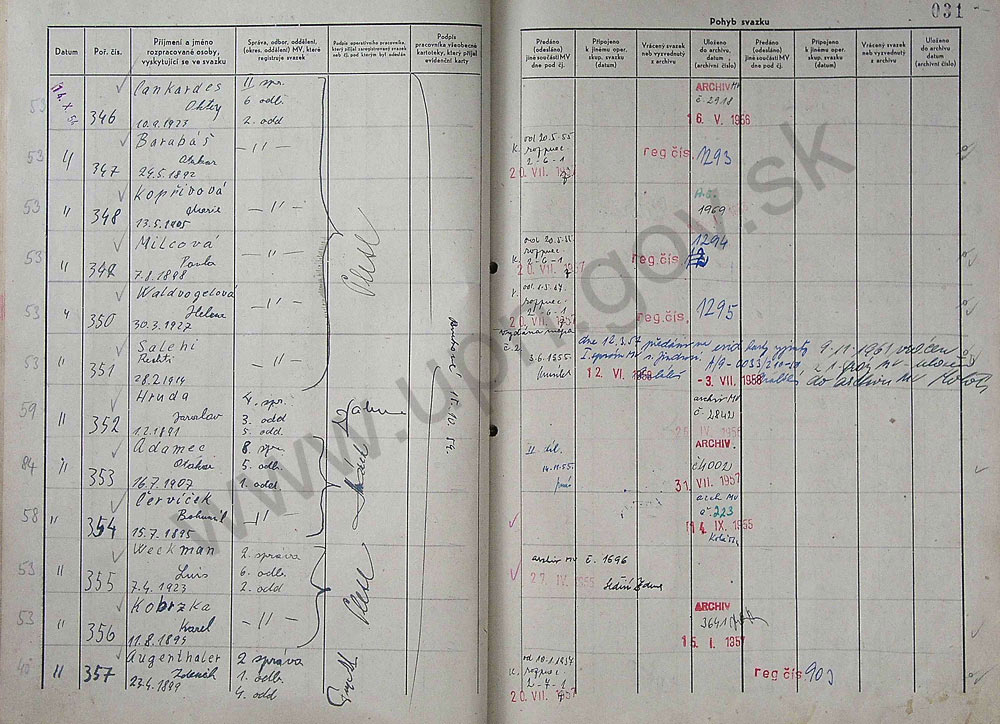 031
Pohyb svazku
Datum
Poř. čís.
Příjmení a jméno
rozpracované osoby,
vyskytující se ve svazku
Správa, odbor, oddělení,
(okres. oddělení) MV, které
registruje svazek
Podpis operativního pracovníka,
který přijal zaregistrovaný svazek
Podpis
pracovníka všeobecné
kartotéky, který přijal
evidenční karty
Předáno
(odesláno)
jiné součásti MV
dne pod čj.
Připojeno
k jinému oper.
skup. svazku
(datum)
Vrácený svazek
neb vyzvednutý
z archivu
Uloženo
do archivu
dne
(archivní číslo)
Předáno
(odesláno)
jiné součásti MV
dne pod čj.
Připojeno
k jinému oper.
skup. svazku
(datum)
Vrácený svazek
neb vyzvednutý
z archivu
Uloženo
do archivu
datum
(archivní číslo)
53 346 Cankardes
10.9.1923
II. spr.
6 odb.
2. odd
ARCHIV MV
č. 2918
16. V. 1956
53 347 Barabáš
Otakar
24.5.1892
— " —
od 20.5.55
K. rozprac.
2-6-1
20. VII. 1957
reg čís. 1293
53 " 348 Kopřivová
Marie
13.5.1905
— " —
1969
53 " 349 Milcová
Pavla
7.8.1898
— " —
od 20.5.55
K. rozprac.
2-6-1
20. VII. 1957
reg čís. 1294
53 " 350 Waldvogelová
Helena
30.3.1927
— " —
K. rozprac.
2-6-1
20. VII. 1957
reg čís. 1295
53 " 351 Salehi
28.2.1914
— " —
č. 2
3.6.1955
dne 12.3.57 předány
12. VI. 1958
A/9-0033/210-58
- 3. VII. 1958
9.11.1961
do archivu MV
59 " 352 Hruda
Jaroslav
1.2.1891
4. spr.
3. odd
5. odd.
archiv MV
č. 2842
15.10.54.
84 " 353 Adamec
Otakar
16.7.1907
8. spr.
5. odb.
1. odd.
II. díl.
14.11.55.
ARCHIV.
č 4002
31. VII. 1957
58 " 354 Červíček
Bohumil
15.7.1895
— " —
arch MV
č. 223
14. IX. 1955
53 " 355 Weckman
Luis
7.4.1923
2. správa
6. odb.
2. odd
archiv MV č. 1696
27. IV. 1955
53 " 356 Kobrzka
Karel
11.8.1895
— " —
ARCHIV
3641
15. I. 1957
" 357 Augenthaler
Zdeněk
23.4.1899
2 správa
1. odb.
4. odd
od 10.1.1957
K. rozprac.
2-7-1
20. VII. 1957
reg čís. 903
www.upn.gov.sk